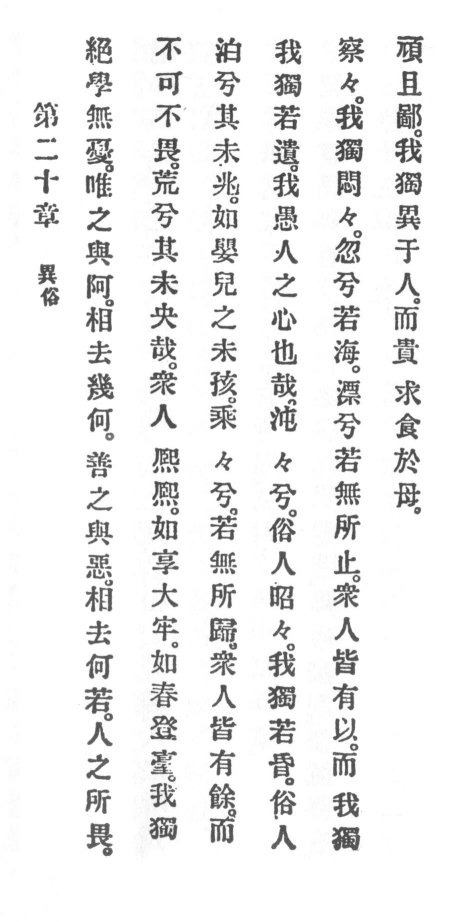 第二十章 異俗
絕學無憂。唯之與阿。相去幾何。善之與惡。相去何若。人之所畏。
不可不畏。荒兮其未央哉。衆人熈熈。如享大牢。如春登臺。我獨
泊兮其未兆。如嬰兒之未孩。乘々兮。若無所歸。衆人皆有餘。而
我獨若遺。我愚人之心也哉。沌々兮。俗人昭々。我獨若昏。俗人
察々。我獨悶々。忽兮若海。漂兮若無所止。衆人皆有以。而我獨
頑且鄙。我獨異于人。而貴求食於母。